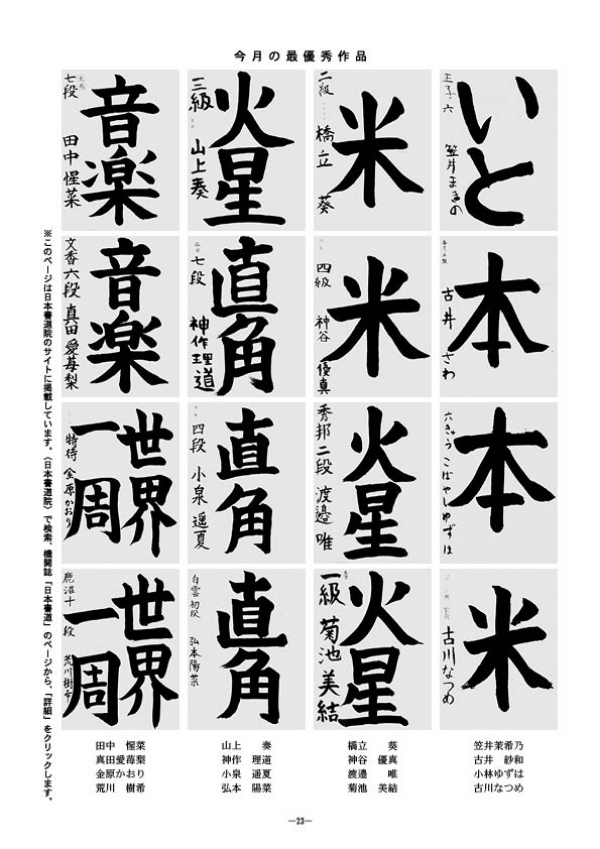 今月の最優秀作品
いと
笠井まきの
米
二級
橋立 葵
火星
三級
山上奏
音楽
七段
田中惺菜
本
古井 さわ
米
四級
神谷 優真
直角
七段
神作理道
音楽
文香六段 真田愛苺梨
本
六きゅう こばやしゆずは
火星
秀邦二段 渡邉 唯
直角
四段 小泉遥夏
世界
一周
特待 金原かおり
米
古川なつめ
火星
一級 菊池美結
直角
白雲 初段 弘本陽菜
世界
一周
鹿沼十一段 荒川樹希
※このページは日本書道院のサイトに掲載しています。〈日本書道院〉で検索、機関誌「日本書道」のページから、「詳細」をクリックします。
田中 惺菜
真田愛苺梨
金原かおり
荒川 樹希
山上 奏
神作 理道
小泉 遥夏
弘本 陽菜
橋立 葵
神谷 優真
渡邉 唯
菊池 美結
笠井茉希乃
古井 紗和
小林ゆずは
古川なつめ
―23―